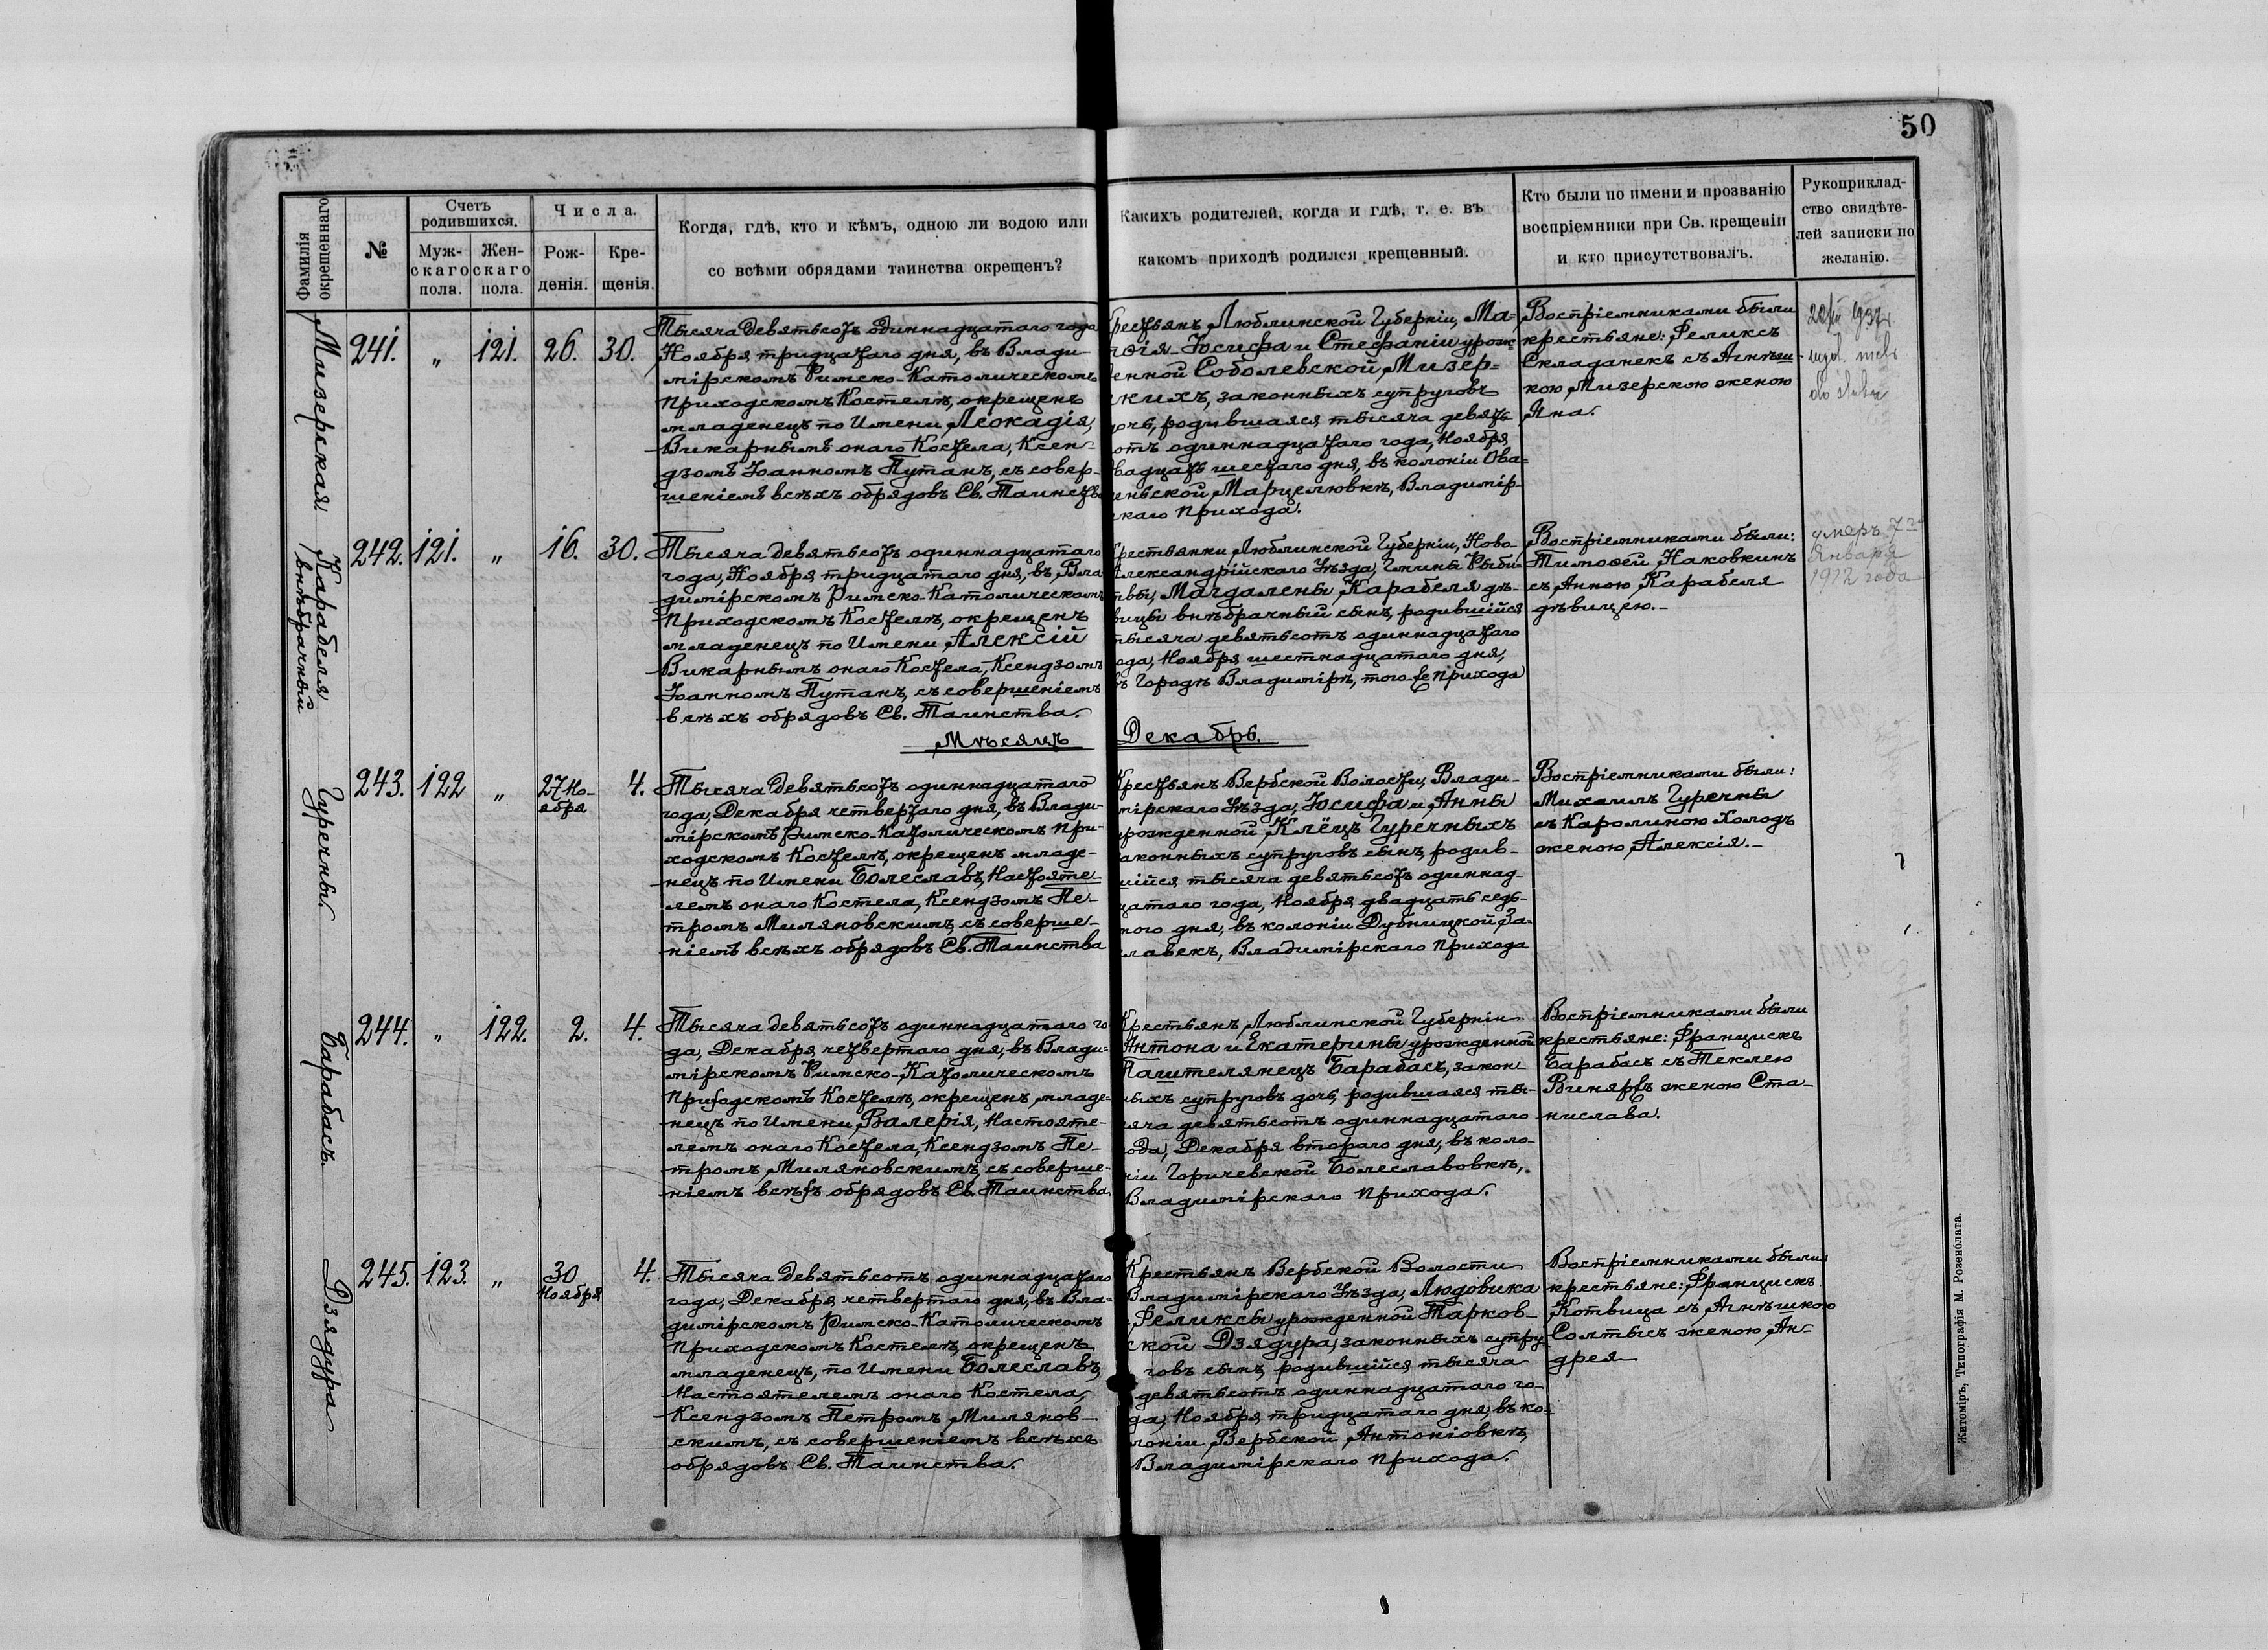 50
Фамилія окрещеннаго
№
Счетъ родившихся.
Муж-
скаго
пола.
Жен-
скаго
пола.
Числа.
Рож-
денія.
Кре-
щенія.
Когда, гдѣ, кто и кѣмъ, одною ли водою или
со всѣми обрядами таинства окрещенъ?
Какихъ родителей, когда и гдѣ, т. е. въ
какомъ приходѣ родился крещенный.
Кто были по имени и прозванію
воспріемники при Св. крещеніи
и кто присутствовалъ.
Рукоприклад-
ство свидѣте-
лей записки по
желанію.
Мизерская
241. „ 121. 26. 30.
Тысяча девятьсотъ одиннадцатаго года
Ноября тридцатаго дня, въ Влади-
мірскомъ Римско-Католическомъ
Приходскомъ Костелѣ, окрещенъ
младенецъ по Имени Леокадія,
Викарнымъ онаго Костела, Ксен-
дзомъ Іоанномъ Путанъ, съ совер-
шеніемъ всѣхъ обрядовъ Св. Таинства
Крестьянъ Люблинской Губерніи, Ма-
Іосифа и Стефаніи урож-
денной Соболевской Мизер-
скихъ, законныхъ супруговъ
дочь, родившаяся тысяча девять
сотъ одиннадцатаго года, Ноября
двадцать шестаго дня, въ колоніи Ова-
Марцелювкѣ, Владимір-
скаго Прихода.
Воспріемниками были
крестьяне: Феликсъ
Складанекъ съ Агнѣш-
кою Мизерскою женою
Яна.
Карабеля
внѣбрачный
242. 121. „ 16. 30.
Тысяча девятьсотъ одиннадцатаго
года, Ноября тридцатаго дня, въ Вла-
димірскомъ Римско-Католическомъ
Приходскомъ Костелѣ, окрещенъ
младенецъ по Имени Алексій
Викарнымъ онаго Костела, Ксендзомъ
Іоанномъ Путанъ, съ совершеніемъ
всѣхъ обрядовъ Св. Таинства.
Крестьянки Люблинской Губерніи, Ново-
Александрійскаго Уѣзда, Гмины Рыби-
твы, Магдалены Карабеля дѣ-
вицы внѣбрачный сынъ, родившійся
тысяча девятьсотъ одиннадцатаго
года, Ноября шестнадцатаго дня,
въ Городѣ Владимірѣ, того-же Прихода
Воспріемниками были:
Тимофей Наковкинъ
съ Анною Карабеля
дѣвицею.-
умеръ 7го
Января
1912 года
Мѣсяцъ Декабрь.
Гуречны.
243. 122 „ 27 Но-
ября 4.
Тысяча девятьсотъ одиннадцатаго
года, Декабря четвертаго дня, въ Влади-
мірскомъ Римско-Католическомъ При-
ходскомъ Костелѣ, окрещенъ младе-
нецъ по Имени Болеславъ, Настояте-
лемъ онаго Костела, Ксендзомъ Пе-
тромъ Миляновскимъ, съ соверше-
ніемъ всѣхъ обрядовъ Св. Таинства
Крестьянъ Вербской Волости, Влади-
мірскаго Уѣзда, Іосифа и Анны
урожденной Клёцъ Гуречныхъ
законныхъ супруговъ сынъ, родив-
шійся тысяча девятьсотъ одиннад-
цатаго года, Ноября двадцать седь-
мого дня, въ колоніи Дубницкой За-
славекъ, Владимірскаго Прихода
Воспріемниками были:
Михаилъ Гуречны
съ Каролиною Холодъ
женою Алексія.-
Барабасъ.
244. „ 122. 2. 4.
Тысяча девятьсотъ одиннадцатаго го-
да, Декабря четвертаго дня, въ Влади-
мірскомъ Римско-Католическомъ
Приходскомъ Костелѣ, окрещенъ младе-
нецъ по Имени Валерія, Настояте-
лемъ онаго Костела, Ксендзомъ Пе-
тромъ Миляновскимъ, съ соверше-
ніемъ всѣхъ обрядовъ Св. Таинства.
Крестьянъ Люблинской Губерніи
Антона и Екатерины урожденной
Паштелянецъ Барабасъ, закон-
ныхъ супруговъ дочь, родившаяся ты-
сяча девятьсотъ одиннадцатаго
года, Декабря второго дня, въ коло-
ніи Горичевской Болеславовкѣ,
Владимірскаго Прихода.
Воспріемниками были
крестьяне: Францискъ
Барабасъ съ Теклею
Винярхъ женою Ста-
нислава.
Дзядура
245. 123. „ 30
Ноября 4.
Тысяча девятьсотъ одиннадцатаго
года, Декабря четвертаго дня, въ Вла-
димірскомъ Римско-Католическомъ
Приходскомъ Костелѣ, окрещенъ
младенецъ, по Имени Болеславъ,
Настоятелемъ онаго Костела,
Ксендзомъ Петромъ Милянов-
скимъ, съ совершеніемъ всѣхъ
обрядовъ Св. Таинства.
Крестьянъ Вербской Волости
Владимірскаго Уѣзда, Людовика
Феликсы урожденной Тарков-
ской Дзядура, законныхъ супру-
говъ сынъ, родившійся тысяча
девятьсотъ одиннадцатаго го-
да, Ноября тридцатаго дня, въ ко-
лоніи Вербской Антоніовкѣ,
Владимірскаго Прихода.
Воспріемниками были
крестьяне: Францискъ
Котвица съ Агнѣшкою
Солтысъ женою Ан-
дрея
Житоміръ, Типографія М. Розенблата.